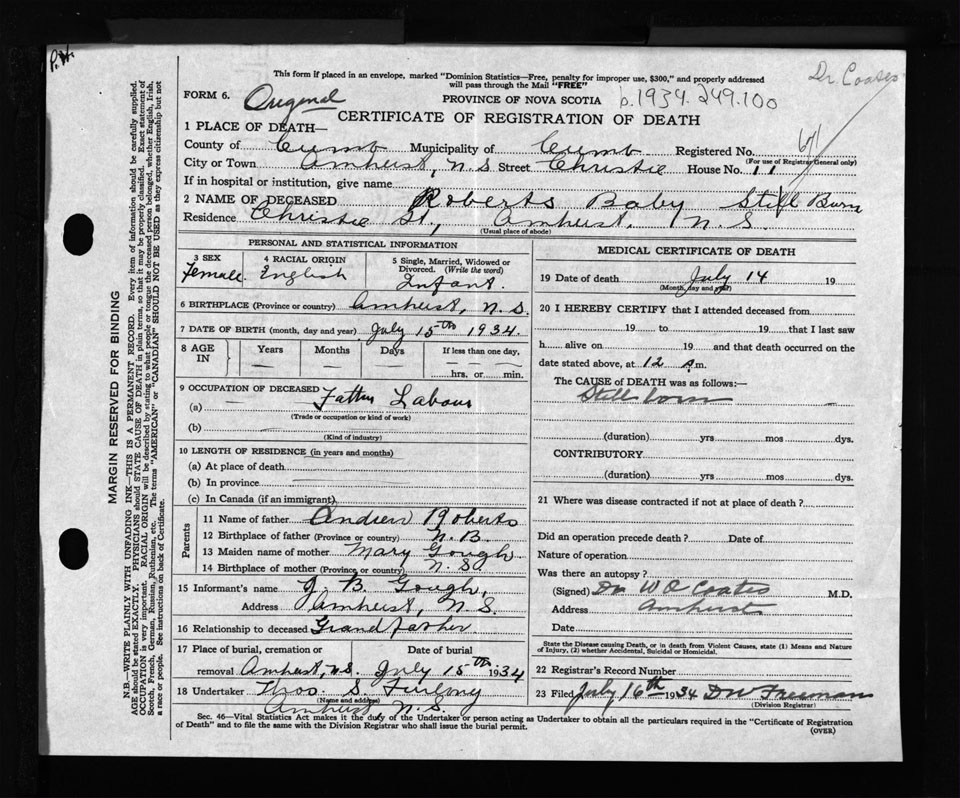 P.H.
Dr Coates
This form if placed in an envelope, marked "Dominion Statistics—Free, penalty for improper use, $300," and properly addressed
will pass through the Mail "FREE"
FORM 6. Original
PROVINCE OF NOVA SCOTIA b.1934.249.100
CERTIFICATE OF REGISTRATION OF DEATH
1 PLACE OF DEATH—
County of Cumb Municipality of Cumb Registered No.
(For use of Registrar General only)
City or Town Amherst, N.S Street Christie House No. 11
If in hospital or institution, give name
2 NAME OF DECEASED Roberts Baby Still Burn
Residence Christie St., Amherst. N.S.
(Usual place of abode)
PERSONAL AND STATISTICAL INFORMATION
3 SEX 4 RACIAL ORIGIN 5 Single, Married, Widowed or
Divorced. (Write the word)
Female English Infant.
6 BIRTHPLACE (Province or country) Amherst, N.S.
7 DATE OF BIRTH (month, day and year) July 15th 1934.
8 AGE IN Years Months Days If less than one day,
hrs. or min.
9 OCCUPATION OF DECEASED Father Labour
(a)
(Trade or occupation or kind of work)
(b)
(Kind of industry)
10 LENGTH OF RESIDENCE (in years and months)
(a) At place of death
(b) In province
(c) In Canada (if an immigrant)
Parents
11 Name of father Andrew Roberts
12 Birthplace of father (Province or country) N.B.
13 Maiden name of mother Mary Gough
14 Birthplace of mother (Province or country) N.S.
15 Informant's name J. B. Gough,
Address Amherst, N.S.
16 Relationship to deceased Grandfather
17 Place of burial, cremation or Date of burial
removal Amherst, N.S. July 15th 1934
18 Undertaker Thos. S. Furlong
(Name and address)
Amherst N.S.
MEDICAL CERTIFICATE OF DEATH
19 Date of death July 14 19
(Month, day and year)
20 I HEREBY CERTIFY that I attended deceased from
19 to 19 that I last saw
h alive on 19 and that death occurred on the
date stated above, at 12 m.
The CAUSE OF DEATH was as follows:—
Still born
(duration) yrs mos dys.
CONTRIBUTORY
(duration) yrs mos dys.
21 Where was disease contracted if not at place of death?
Did an operation precede death? Date of
Nature of operation
Was there an autopsy?
(Signed) Dr W Coates M.D.
Address Amherst
Date
State the Disease causing Death, or in death from Violent Causes, state (1) Means and Nature
of Injury, (2) whether Accidental, Suicidal or Homicidal.
22 Registrar's Record Number
23 Filed July 16th 1934 D W Freeman
(Division Registrar)
Sec. 46—Vital Statistics Act makes it the duty of the Undertaker or person acting as Undertaker to obtain all the particulars required in the "Certificate of Registration
of Death" and to file the same with the Division Registrar who shall issue the burial permit.
(OVER)
MARGIN RESERVED FOR BINDING
N.B.—WRITE PLAINLY WITH UNFADING INK—THIS IS A PERMANENT RECORD. Every item of information should be carefully supplied.
AGE should be stated EXACTLY. PHYSICIANS should STATE CAUSE OF DEATH in plain terms, so that it may be properly classified. Exact statement of
OCCUPATION is very important. RACIAL ORIGIN will be described by stating to what people or tongue the deceased person belonged, whether English, Irish,
Scotch, French, German, Russian, Ruthenian, etc. The terms "AMERICAN" or "CANADIAN" SHOULD NOT BE USED as they express citizenship but not
a race or people. See instructions on back of Certificate.